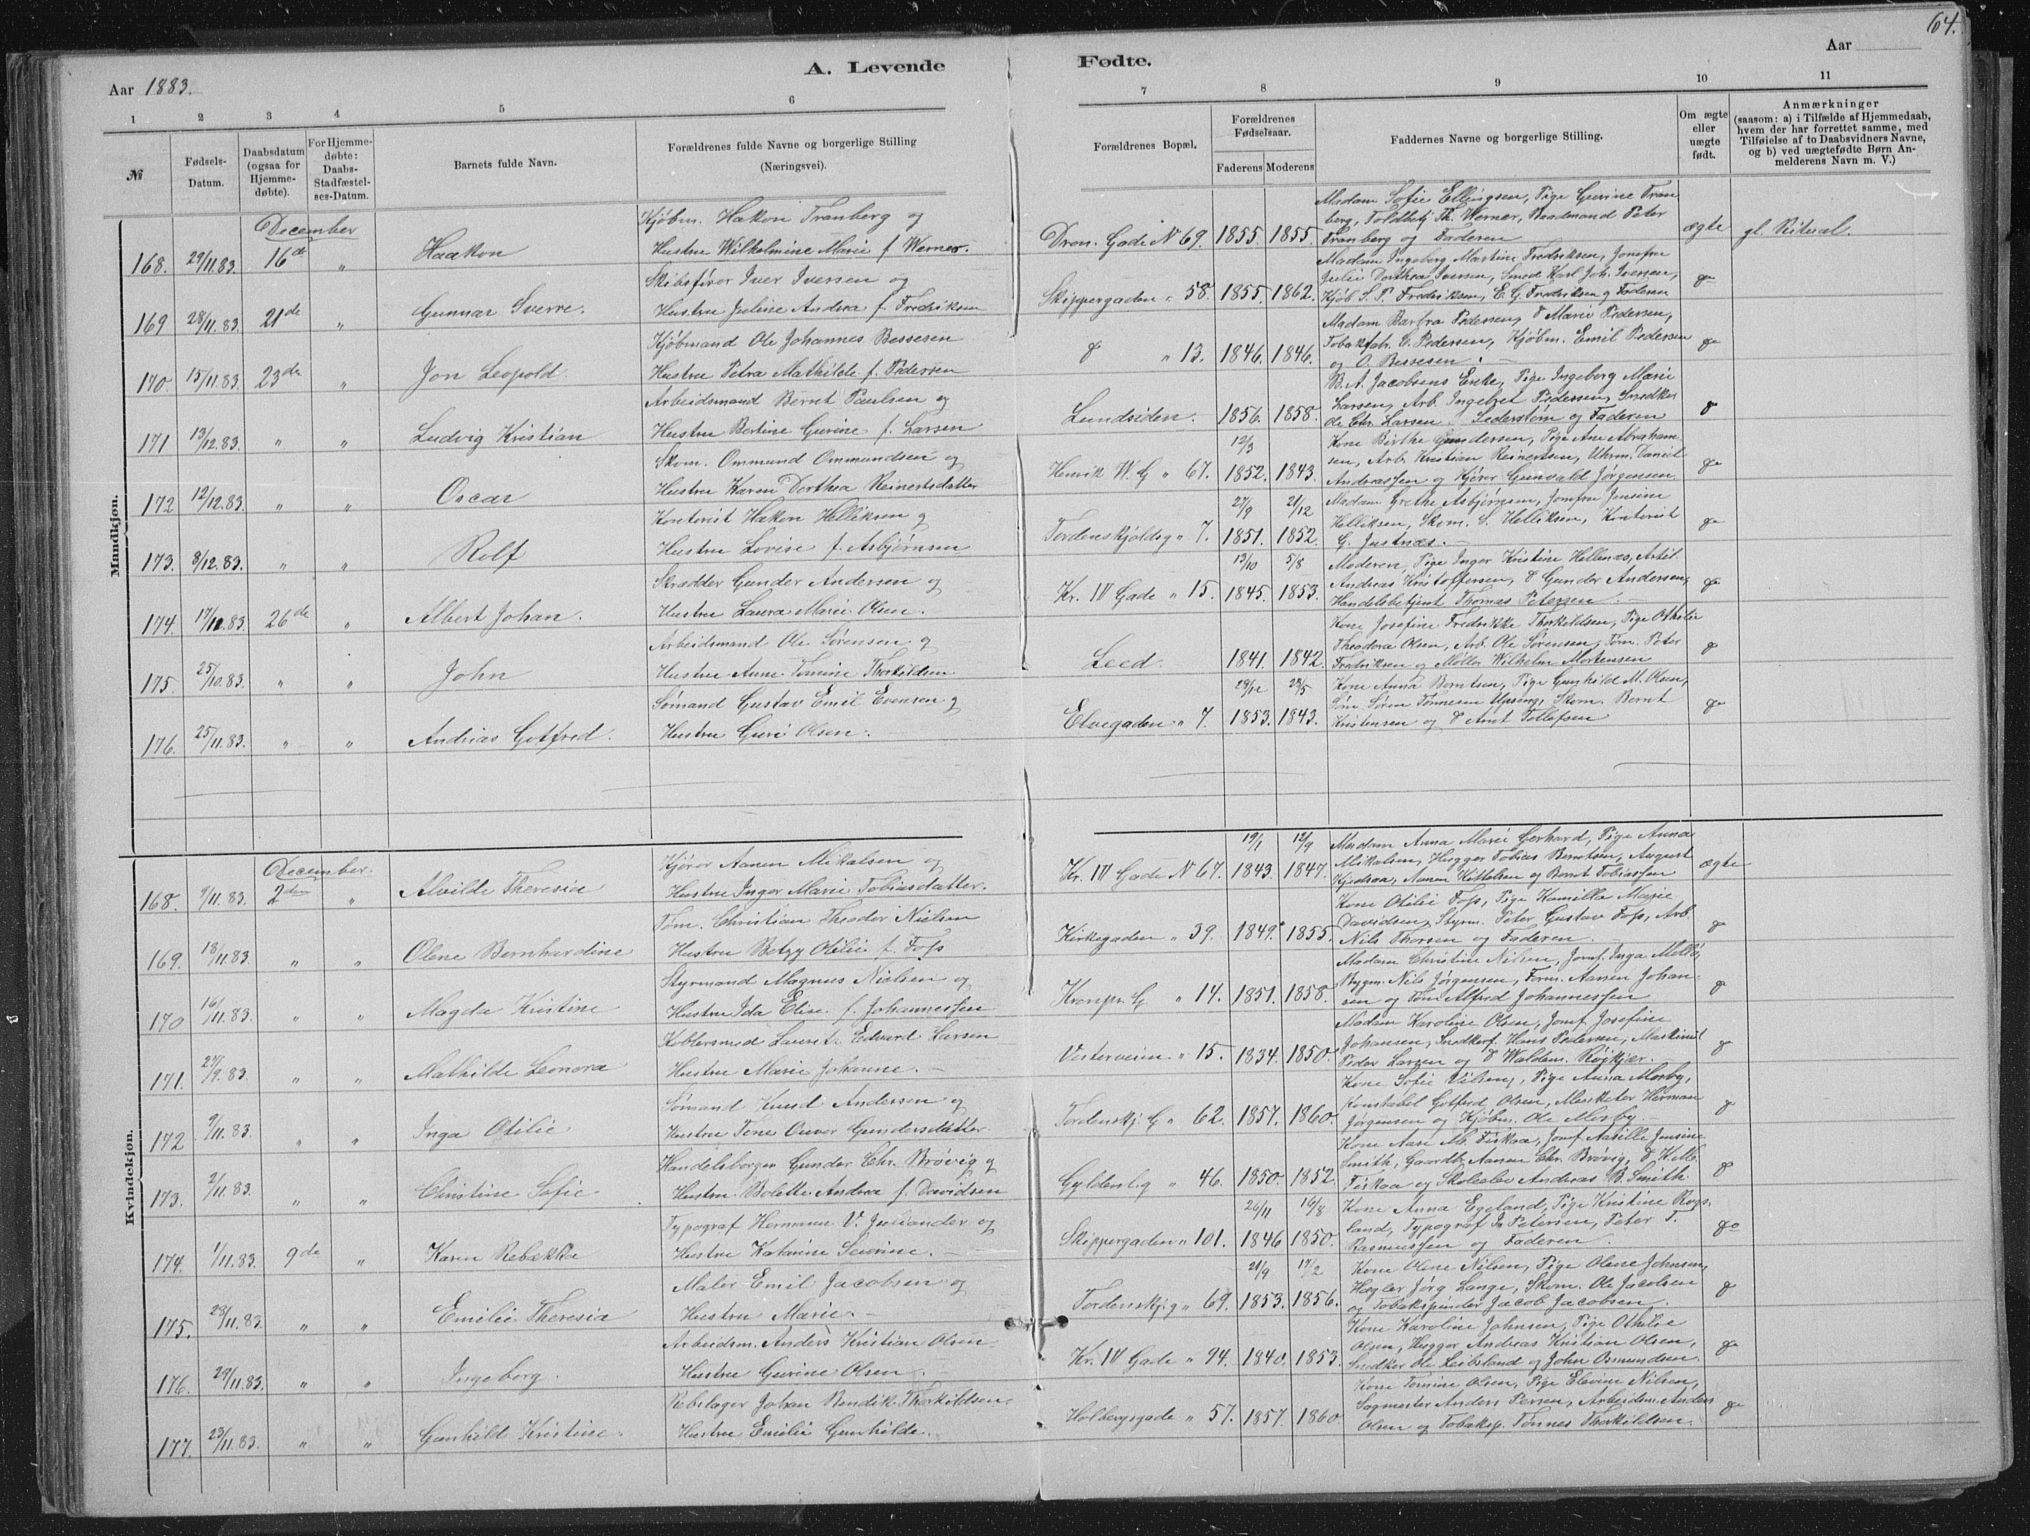 64.
Aar 1883.
A. Levende
Fødte.
Aar
1 2 3 4 5 6 7 8 9 10 11
№
Fødsels-Datum.
Daabsdatum (ogsaa for Hjemme-døbte).
For Hjemme-døbte: Daabs-Stadfæstel-ses-Datum.
Barnets fulde Navn.
Forældrenes fulde Navne og borgerlige Stilling (Næringsvei).
Forældrenes Bopæl.
Forældrenes Fødselsaar.
Faderens Moderens
Faddernes Navne og borgerlige Stilling.
Om ægte eller uægte født.
Anmærkninger
(saasom: a) i Tilfælde af Hjemmedaab, hvem der har forrettet samme, med Tilføielse af to Daabsvidners Navne, og b) ved uægtefødte Børn Anmelderens Navn m. V.)
Mandkjøn.
December
168. 29/11.83. 16de " Haakon
Kjøbm. Hækon Tranberg og
Hustru Wilhelmine Marie f. Werner.
Dron. Gade N 69. 1855. 1855.
Madam Sofie Ellingsen, Pige Gurine Tran
berg, Toldbetj. Th. Werner, Baadmand Peter
Tranberg og Faderen
ægte gl. Ritual.
169 28/11.83. 21de " Gunnar Sverre.
Skibsfører Iver Iversen og
Hustru Juline Andrea f. Fredriksen
Skippergaden " 58. 1855. 1862.
Madam Ingeborg Martine Fredriksen, Jomfru
Julie Dorthea Iversen, Smed Karl Joh. Iversen,
Kjøb. S. P. Fredriksen, E. G. Fredriksen og Faderen
170. 15/11.83. 23de " Jon Leopold.
Kjøbmand Ole Johannes Bessesen
Hustru Petra Mathilde f. Pedersen
" 13. 1846. 1846.
Madam Barfra Pedersen, Marie Pedersen,
Tobakfabr. G. Pedersen, Kjøbm. Emil Pedersen
og O. Bessesen
171 13/12.83. " " Ludvig Kristian
Arbeidsmand Bernt Paulsen og
Hustru Bertine Gurine f. Larsen
Lundsiden. 1856. 1858.
B. A. Jacobsens Enke, Pige Ingeborg Marie
Larsen, Arb. Ingebret Pedersen, Snedker
Chr. Larsen Sederstøm og Faderen
172 12/12.83. " " Oscar
Skom. Ommund Ommundsen og
Hustru Karen Dorthea Reinertsdatter
Henrik W. G " 67. 12/3 1852. 1843.
Kone Birthe Gundersen, Pige Ane Abraham
sen, Arb. Kristian Reinertsen, Uhrm. Daniel
Andreassen og Kjører Gunvald Jørgensen
173. 8/12.83. " " Rolf
Kontorist Hækon Helliksen og
Hustru Lovise f. Asbjørnsen
Tordenskjoldsg " 7. 27/9 1851. 21/12 1852.
Madam Grethe Asbjørnsen, Jomfru Jensine
Helliksen, Skom. S. Helliksen, Kontorist
G. Justnæs.
174. 17/10.83. 26de " Albert Johan.
Skrædder Gunder Andersen og
Hustru Laura Marie Olsen.
Kr. IV Gade " 15. 13/10 1845. 5/8 1853.
Moderen, Pige Inger Kristine Hellenæs, Arbd.
Andreas Kristoffersen, Gunder Andersen,
Handelsbetjent Thomas Petersen
175. 25/10.83. " " John
Arbeidsmand Ole Sørensen og
Hustru Anne Tomine Thorkildsen
Leed. 1841. 1842.
Kone Josefine Fredrikke Thorkildsen, Pige Othelie
Theodora Olsen, Arb. Ole Sørensen, Tøm. Peter
Fredriksen og Møller Wilhelm Mortensen
176. 25/11.83. " " Andrias Gotfred.
Sømand Gustav Emil Evensen og
Hustru Guri Olsen.
Elvegaden " 7. 29/12 1853. 28/5 1843.
Kone Anna Berntsen, Pige Gunhild M. Olsen,
Søren Tønnesen Upsing, Skom. Bernt
Kristensen og Arnt Tollefsen
Kvindekjøn.
December.
168. 9/11.83. 2den " Alvilde Theresia
Kjører Aanen Mikalsen og
Hustru Inger Marie Tobiasdatter.
Kr. IV Gade N 67. 19/1 1843. 12/9 1847.
Madam Anna Marie Gerhard, Pige Anna
Mikalsen, Hugger Tobias Berntsen, August
Kjedsaa, Aanen Kittelsen og Bernt Tobiassen
ægte
169. 18/11.83. " " Olene Bernhardine
Tøm. Christian Theodor Nielsen
Hustru Betzy Otilie f. Foss
Kirkegaden " 39. 1849. 1855.
Kone Otilie Foss, Pige Kamilla Marie
Davidsen, Styrm. Peter Gustav Foss, Arb
Nils Thorsen og Faderen.
170 16/11.83. " " Magda Kristine
Styrmand Magnus Nielsen og
Hustru Ida Elise f. Johannessen
Kronpr. G " 14. 1851. 1858.
Madam Christine Nilsen, Jomf. Inga Møllø,
Bygm. Nils Jørgensen, Form. Aanen Johan
sen og Tøm. Alfred Johannessen
171. 27/9.83. " " Mathilde Leonora
Koblersmed Laurets Edvard Larsen
Hustru Marie Johanne.
Vesterveien " 15. 1834. 1850.
Madam Karoline Olsen, Jomf. Josefine
Johansen, Snedkerf. Hans Pedersen, Maskinist
Peder Larsen og Waldem. Røjkjær.
172 9/11.83. " " Inga Otilie
Sømand Knud Andersen og
Hustru Tone Gundersdatter
Tordenskj. G " 62. 1857. 1860.
Kone Sofie Vilsen, Pige Anna Mosby,
Konstabel Gotfred Olsen, Musketer Herman
Jørgensen og Kjøbm. Ole Mosby
173. 2/11.83. " " Christine Sofie
Handelsborger Gunder Chr. Brøvig og
Hustru Bolette Andrea f. Davidsen
Gyldenl. g " 46. 1850. 1852.
Kone Aase M. Fiskaa, Jomf. Jensine
Smith, Gaardb. Aanen Chr. Brøvig,
Fiskaa og Skoleelev Andreas B. Smith
174. 1/11.83. 9de " Karen Rebekka
Typograf Hermann V. Juliander og
Hustru Katarine Severine.
Skippergaden " 101. 26/11 1846 16/8 1850.
Kone Anna Egeland, Pige Kristine Rogs
land, Typograf Petersen, Peter T.
Rasmussen og Faderen.
175. 28/11.83. " " Emilie Theresia
Maler Emil Jacobsen og
Hustru Marie.
Tordenskj.g " 69. 21/9 1853. 17/2 1856.
Kone Olene Nilsen, Pige Olene Johnsen,
Hegler Jørg Lange, Skom. Ole Jacobsen
og Tobakspinder Jacob Jacobsen.
176. 29/11.83. " " Ingeborg.
Arbeidsm. Anders Kristian Olsen
Hustru Gurine Olsen.
Kr. IV Gade " 94. 1840. 1853.
Kone Karoline Johnsen, Pige Otheliæ
Olsen, Hugger Andreas Kristian Olsen,
Snedker Ole Leibsland og John Osmundsen.
177. 23/11.83. " " Gunhild Kristine.
Rebslager Johan Bendik Thorkildsen
Hustru Emilie Gunhilde.
Holbergsgade " 57. 1857. 1860.
Kone Tomine Olsen, Pige Elevine Nilsen,
Sagmester Anders Persen, Arbeidsm. Anders
Olsen og Tobaksp. Tønnes Thorkildsen.